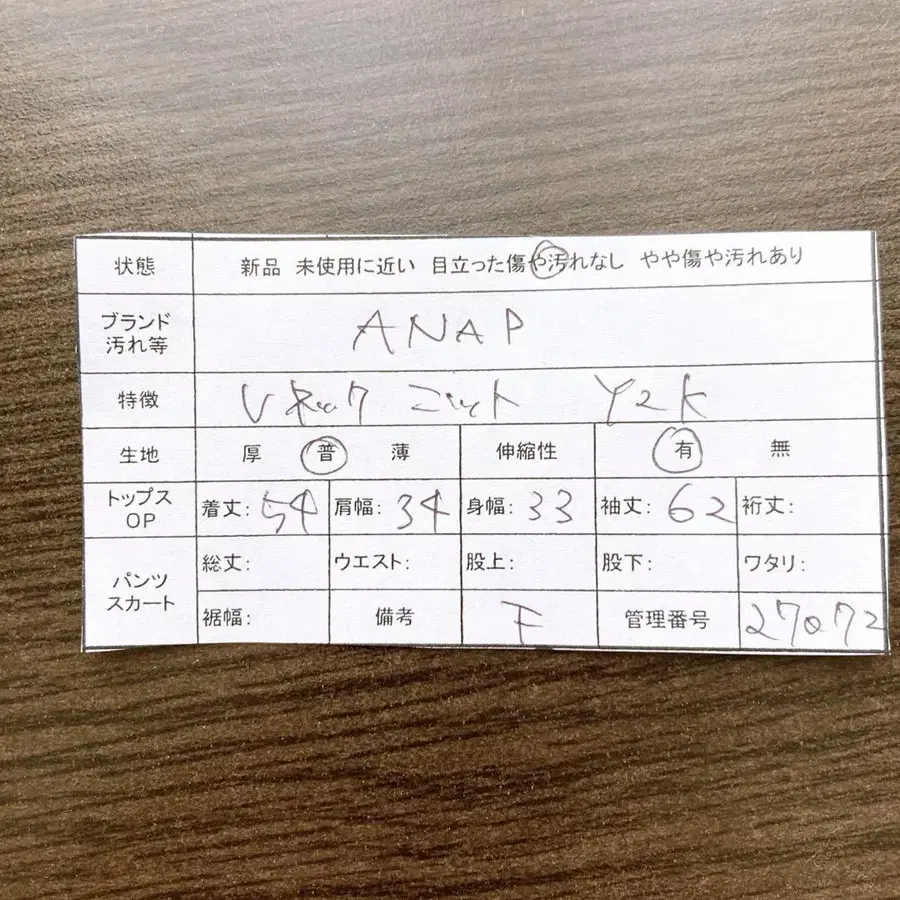 状態 新品 未使用に近い 目立った傷や汚れなし やや傷や汚れあり
ブランド
汚れ等 ANAP
特徴 Vネック ニット Y2K
生地 厚 普 薄 伸縮性 有 無
トップス
OP 着丈: 54 肩幅: 34 身幅: 33 袖丈: 62 裄丈:
パンツ
スカート 総丈: ウエスト: 股上: 股下: ワタリ:
裾幅: 備考 F 管理番号 27072